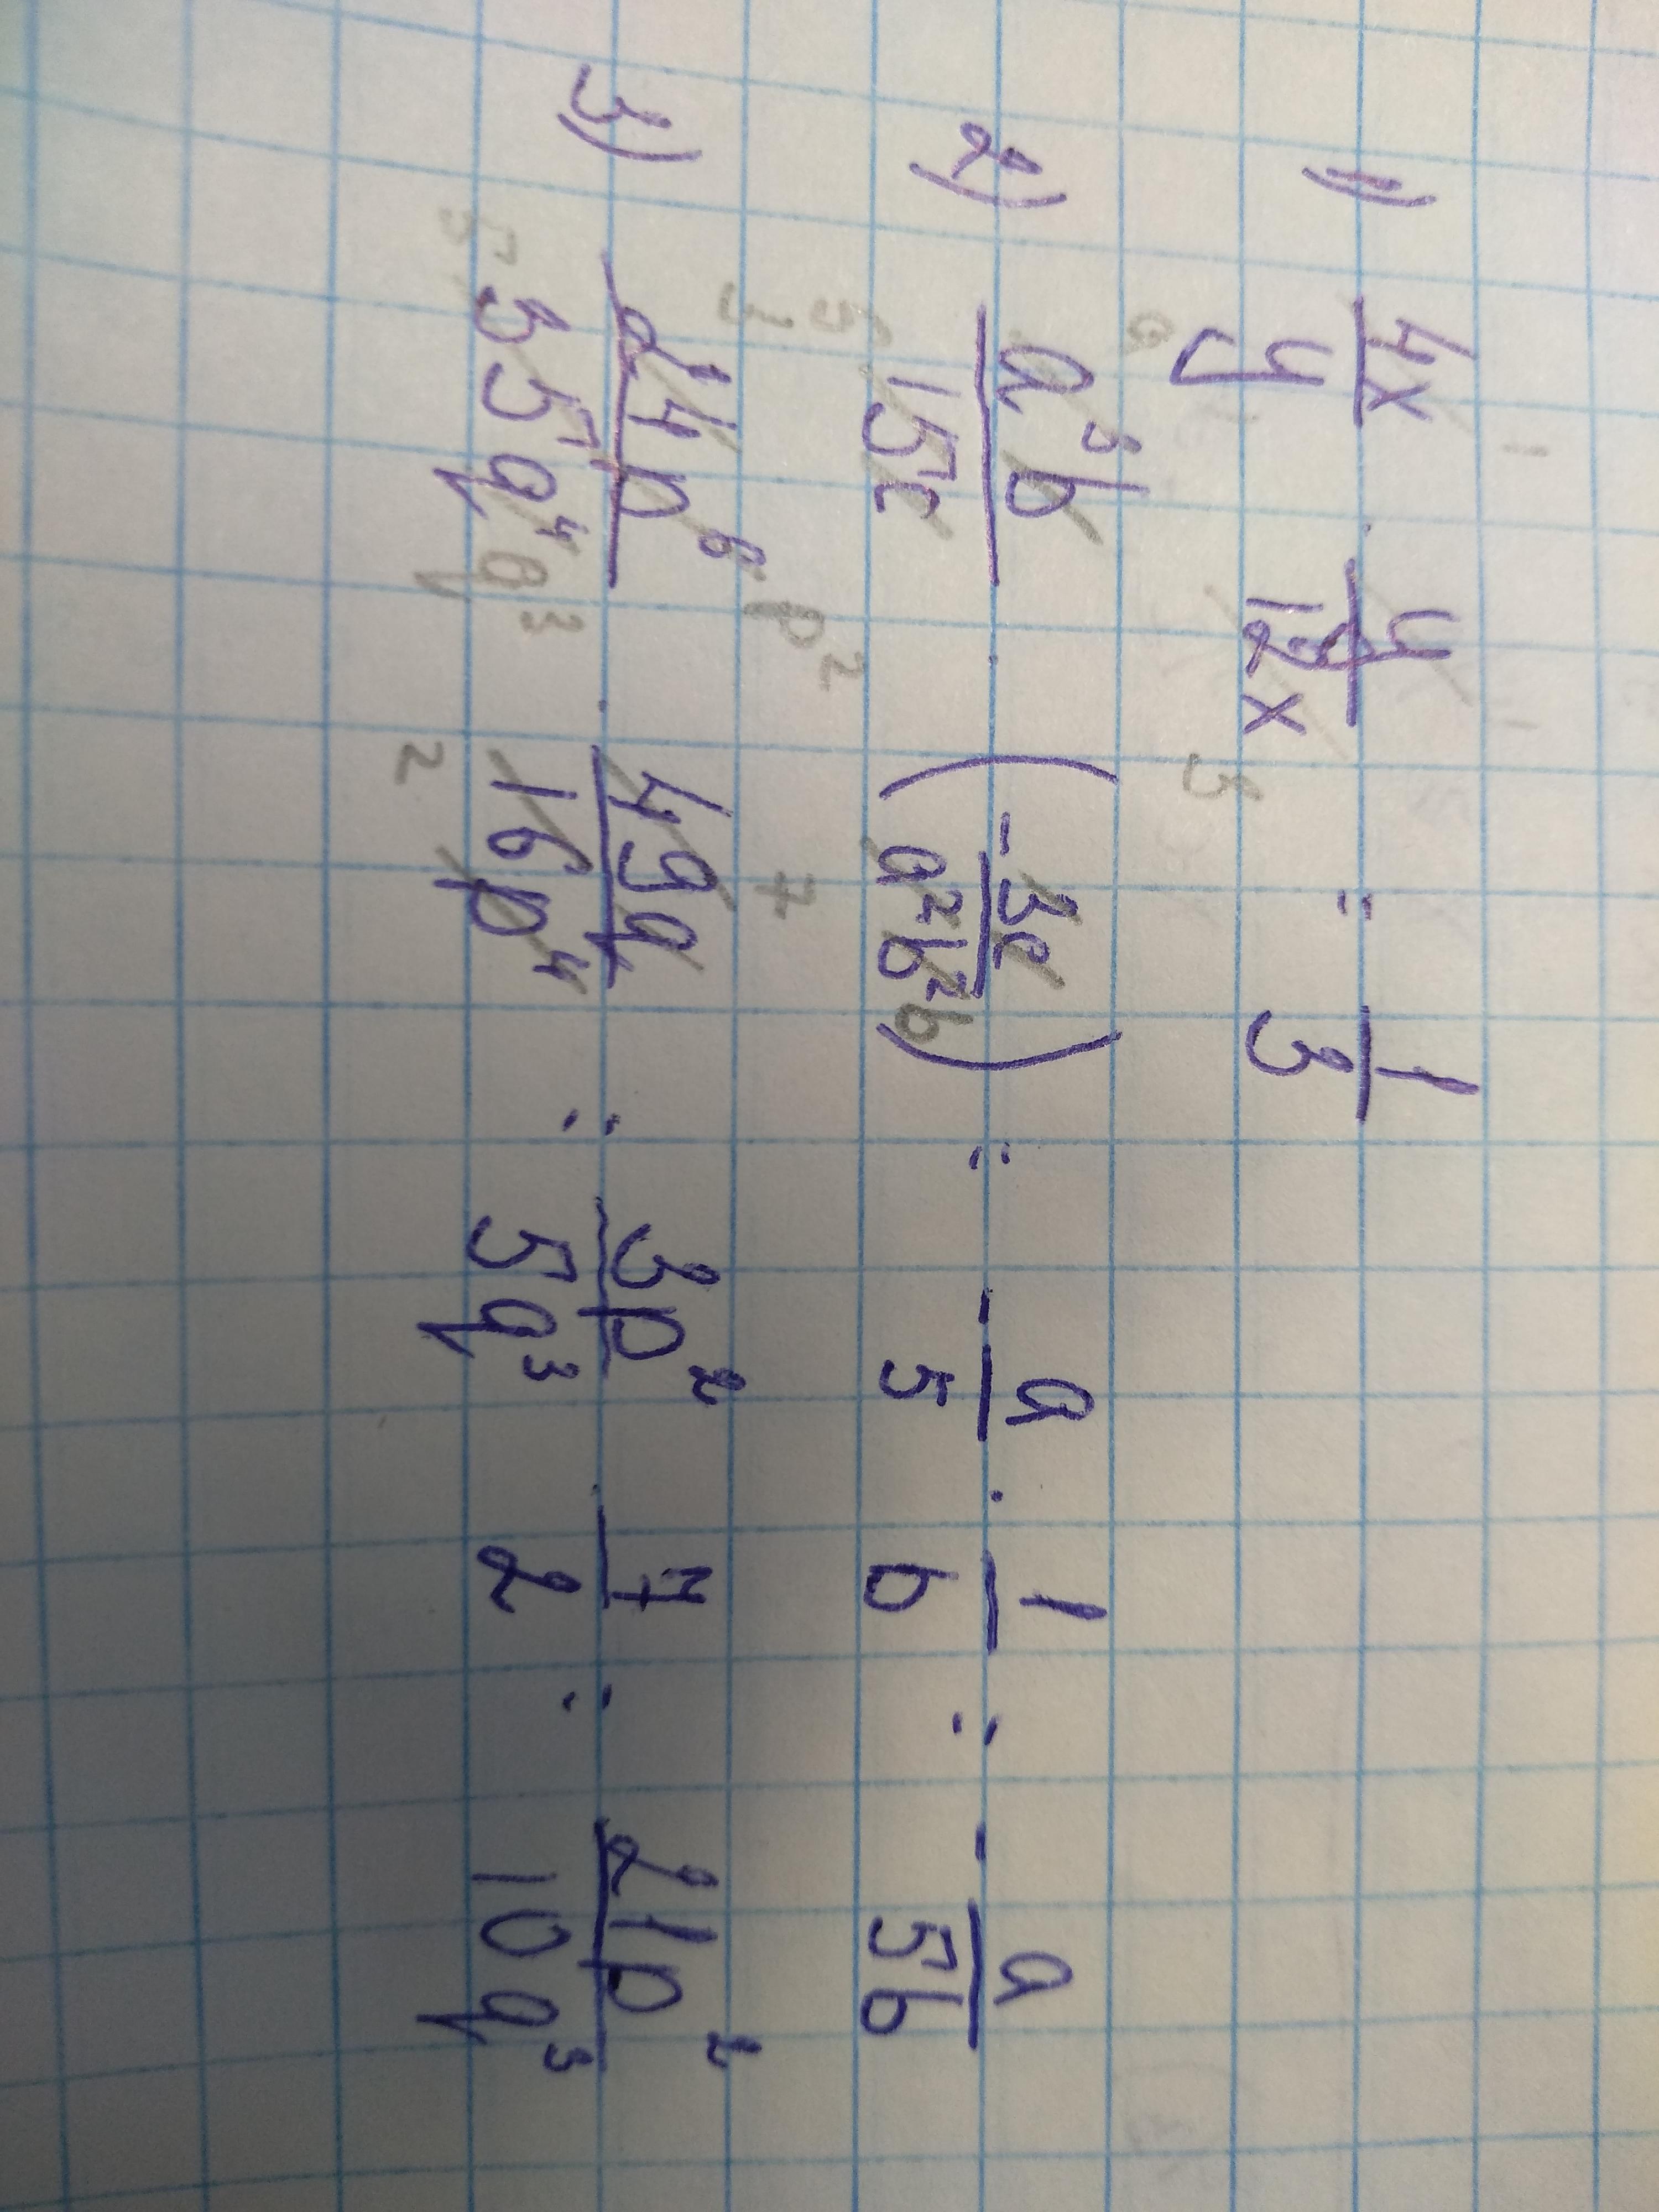 1) 4x/y · y/12x = 1/3
2) a³b/15c · (-3c/a²b²) = -a/5 · 1/b = -a/5b
3) 24p⁶/35q⁴ · 49q/16p⁴ = 3p²/5q³ · 7/2 = 21p²/10q³